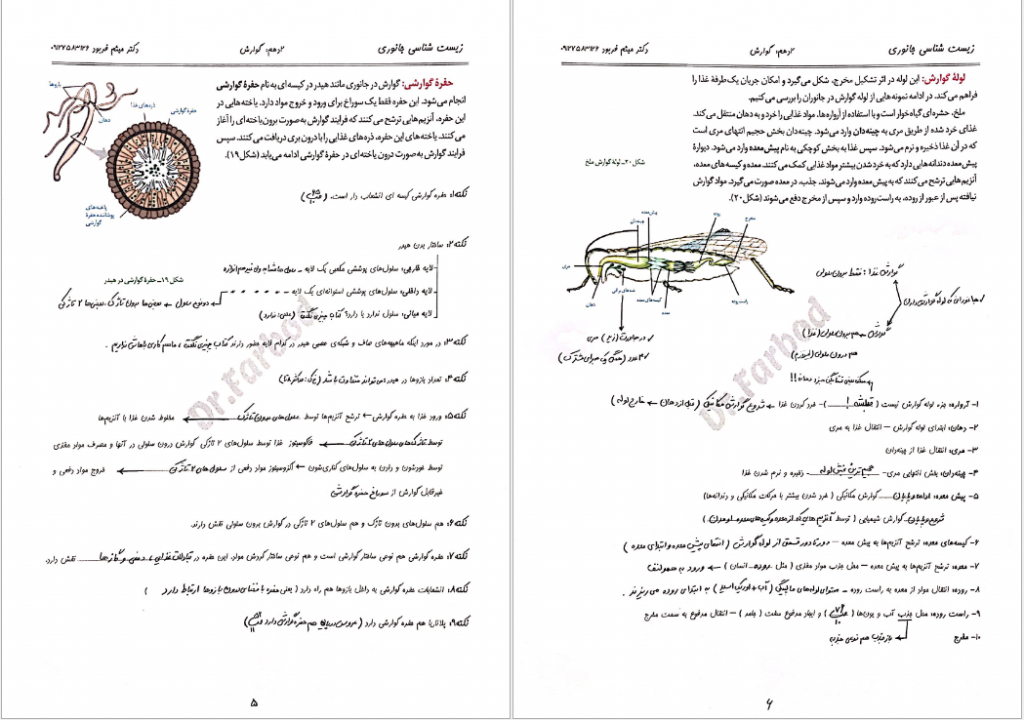 زیست شناسی جانوری
۲دهم: گوارش
دکتر میثم فربود ۰۹۱۲۷۵۸۳۱۲۶
حفرهٔ گوارشی: گوارش در جانوری مانند هیدر در کیسه ای به نام حفرهٔ گوارشی
انجام می‌شود. این حفره فقط یک سوراخ برای ورود و خروج مواد دارد. یاخته‌هایی در
این حفره، آنزیم‌هایی ترشح می کنند که فرایند گوارش به صورت برون‌یاخته ای را آغاز
می کنند. یاخته‌های این حفره، ذره‌های غذایی را با درون بری دریافت می‌کنند. سپس
فرایند گوارش به صورت درون یاخته‌ای در حفرهٔ گوارشی ادامه می‌یابد (شکل ۱۹).
بازوها
ذره‌های غذا
حفره‌گوارشی
دهان
یاخته‌های
پوشاننده حفرهٔ
گوارشی
شکل ۱۹ـ حفرهٔ گوارشی در هیدر
نکته۱: حفره گوارشی کیسه ای انشعاب دار است.
نکته۲: ساختار بدن هیدر
لایه خارجی: سلول‌های پوششی مکعبی یک لایه
لایه داخلی: سلول‌های پوششی استوانه‌ای یک لایه
لایه میانی: سلول ندارد یا دارد؟ کتاب چیزی نگفته
نکته۳: در مورد اینکه ماهیچه‌های صاف و شبکه‌ی عصبی هیدر در کدام لایه حضور دارند کتاب چیزی نگفته، ما هم کاری باهاش نداریم.
نکته۴: تعداد بازوها در هیدر می‌تواند متفاوت باشد
نکته۵: ورود غذا به حفره گوارشی ← ترشح آنزیم‌ها توسط سلول‌های بدون تاژک ← مخلوط شدن غذا با آنزیم‌ها
توسط تاژک‌های سلول‌های ۲ تاژکی ← فاگوسیتوز غذا توسط سلول‌های ۲ تاژکی گوارش درون سلولی در آنها و مصرف مواد مغذی
توسط خودشون و دادن به سلول‌های کناری‌شون ← اگزوسیتوز مواد دفعی از سلول‌های ۲ تاژکی ← خروج مواد دفعی و
غیرقابل گوارش از سوراخ حفره گوارشی
نکته۶: هم سلول‌های بدون تاژک و هم سلول‌های ۲ تاژکی در گوارش برون سلولی نقش دارند.
نکته۷: حفره گوارشی هم نوعی ساختار گوارشی است و هم نوعی ساختار گردش مواد. این حفره در تبادلات غذایی، دفعی و گازها نقش دارد.
نکته۸: انشعابات حفره گوارشی به داخل بازوها هم راه دارد ( یعنی حفره با فضای درون بازوها ارتباط دارد )
نکته۹: پلاناریا هم حفره گوارشی دارد
Dr.Farbod
۵
زیست شناسی جانوری
۲دهم: گوارش
دکتر میثم فربود ۰۹۱۲۷۵۸۳۱۲۶
لولهٔ گوارش: این لوله در اثر تشکیل مخرج، شکل می‌گیرد و امکان جریان یک‌طرفهٔ غذا را
فراهم می‌کند. در ادامه نمونه‌هایی از لوله گوارش در جانوران را بررسی می‌کنیم.
ملخ، حشره‌ای گیاه‌خوار است و با استفاده از آرواره‌ها، مواد غذایی را خرد و به دهان منتقل می‌کند.
غذای خرد شده از طریق مری به چینه‌دان وارد می‌شود. چینه‌دان بخش حجیم انتهای مری است
که در آن غذا ذخیره و نرم می‌شود. سپس غذا به بخش کوچکی به نام پیش‌معده وارد می‌شود. دیوارهٔ
پیش‌معده دندانه‌هایی دارد که به خرد شدن بیشتر مواد غذایی کمک می‌کنند. معده و کیسه‌های معده،
آنزیم‌هایی ترشح می‌کنند که به پیش‌معده وارد می‌شوند. جذب، در معده صورت می‌گیرد. مواد گوارش
نیافته پس از عبور از روده، به راست‌روده وارد و سپس از مخرج دفع می‌شوند (شکل ۲۰).
شکل ۲۰ـ لولهٔ گوارش ملخ
پیش‌معده
چینه‌دان
روده
مخرج
مری
دهان
غده‌های بزاقی
کیسه‌های معده
معده
راست‌روده
گوارش غذا: فقط برون سلولی
۱- آرواره: جزء لوله گوارش نیست - خرد کردن غذا ← شروع گوارش مکانیکی (قبل از دهان ← خارج لوله)
۲- دهان: ابتدای لوله گوارش – انتقال غذا به مری
۳- مری: انتقال غذا از چینه‌دان
۴- چینه‌دان: بخش انتهایی مری- حجیم ترین بخش لوله - ذخیره و نرم شدن غذا
۵- پیش معده: ادامه و پایان گوارش مکانیکی ( خرد شدن بیشتر با حرکات مکانیکی و دندانه‌ها)
شروع و پایان گوارش شیمیایی ( توسط آنزیم‌هایی که از معده و کیسه‌های معده اومدن )
۶- کیسه‌های معده: ترشح آنزیم‌ها به پیش معده –
۷- معده: ترشح آنزیم‌ها به پیش معده – محل جذب مواد مغذی ( مثل روده انسان ) ← ورود به همولنف
۸- روده: انتقال مواد از معده به راست روده – محتوای لوله‌های مالپیگی ( آب + اوریک اسید ) به ابتدای روده می ریزند.
۹- راست روده: محل جذب آب و یون‌ها و ایجاد مدفوع سفت ( جامد ) – انتقال مدفوع به سمت مخرج
۱۰- مخرج
Dr.Farbod
۶